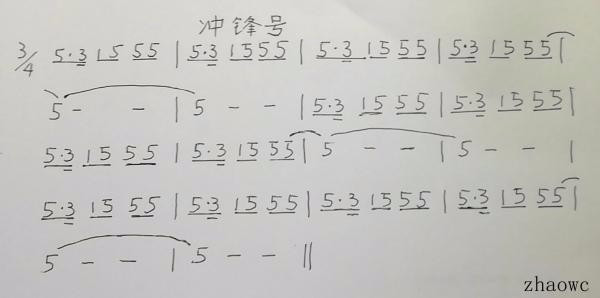 冲锋号
3/4 5·3 15 55 | 5·3 15 55 | 5·3 15 55 | 5·3 15 55 |
5 - - | 5 - - | 5·3 15 55 | 5·3 15 55 |
5·3 15 55 | 5·3 15 55 | 5 - - | 5 - - |
5·3 15 55 | 5·3 15 55 | 5·3 15 55 | 5·3 15 55 |
5 - - | 5 - - ||
zhaowc